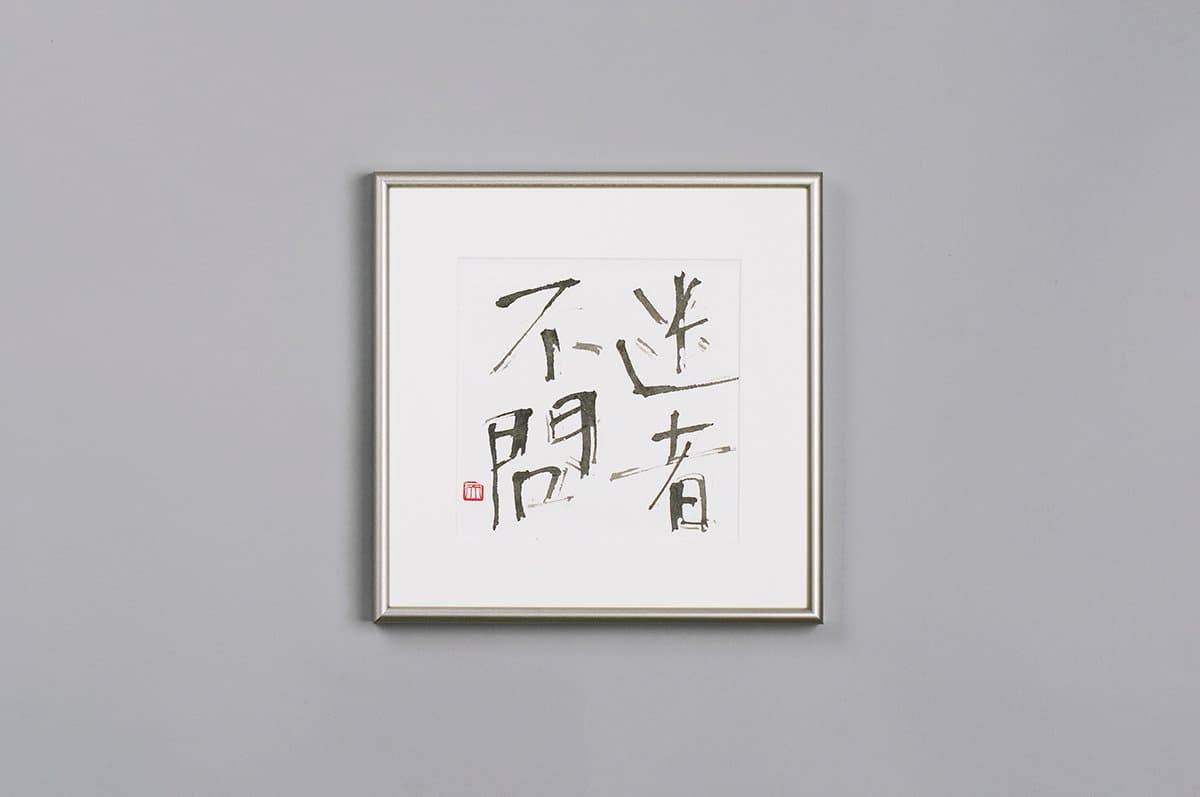 迷者
不問